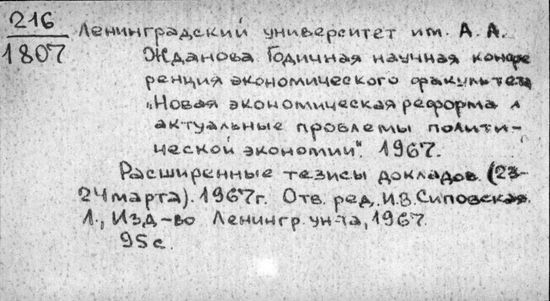 216
1807
Ленинградский университет им. А. А.
Жданова. Годичная научная конфе
ренция экономического факультета
„Новая экономическая реформа и
актуальные проблемы полити-
ческой экономии". 1967.
Расширенные тезисы докладов. (23-
24 марта). 1967 г. Отв. ред. И.В. Сиповская.
Л., Изд-во Ленингр. ун-та, 1967.
95 с.